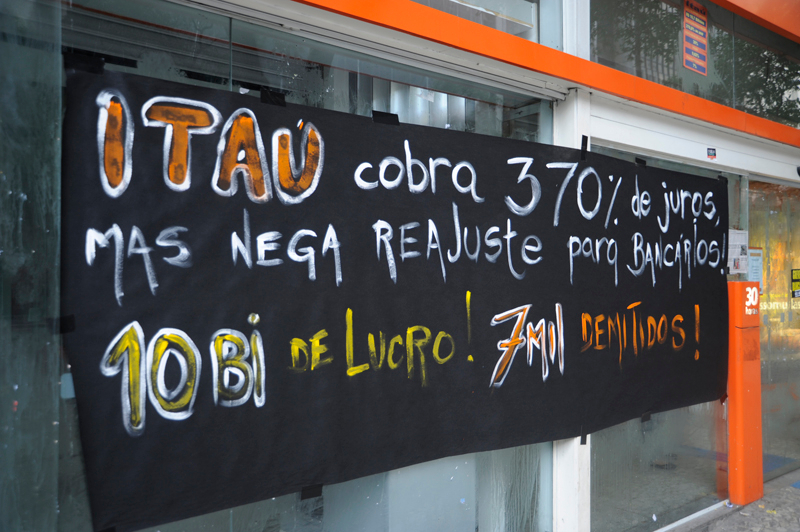 ITAÚ cobra 370% de juros,
MAS NEGA REAJUSTE para BANCÁRIOS!
10BI DE LUCRO! 7MIL DEMITIDOS!
30
horas